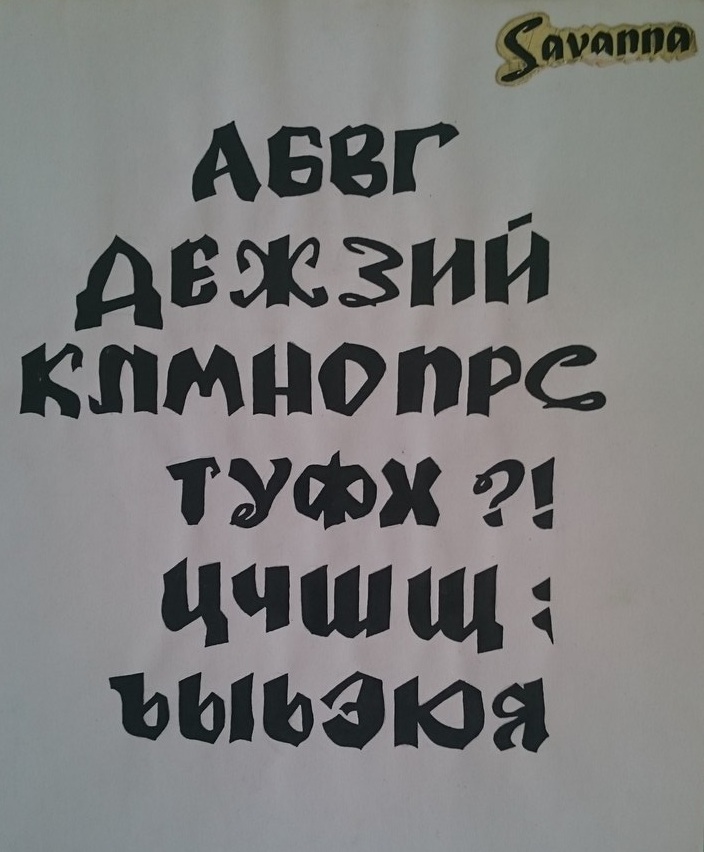 Savanna
АБВГ
ДЕЖЗИЙ
КЛМНОПРС
ТУФХ ?!
ЦЧШЩ ;
ЪЫЬЭЮЯ